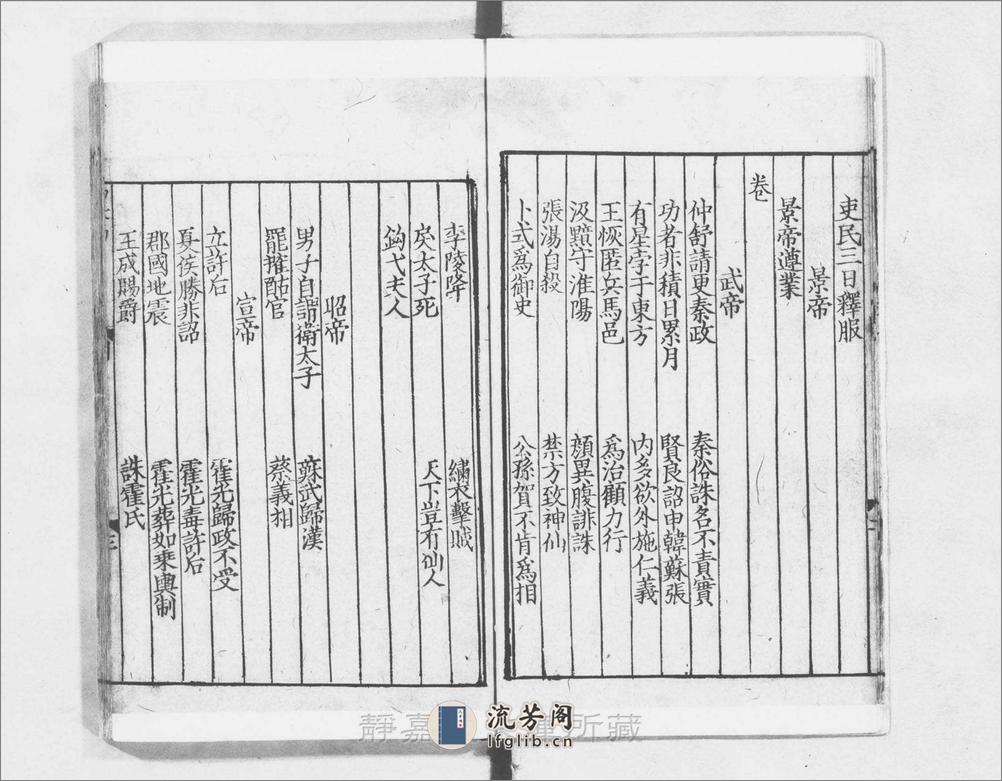 吏民三日釋服
景帝
景帝遵業
卷
武帝
仲舒請更秦政　秦俗誅名不責實
功者非積日累月　賢良詔申韓蘇張
有星孛于東方　内多欲外施仁義
王恢匿兵馬邑　爲治顧力行
汲黯守淮陽　顔異腹誹誅
張湯自殺　禁方致神仙
卜式爲御史　公孫賀不肯爲相
李陵降　繡衣擊賊
戾太子死　天下豈有仙人
鈎弋夫人
昭帝
男子自謂衛太子　蘇武歸漢
罷搉酤官　蔡義相
宣帝
立許后　霍光歸政不受
夏侯勝非詔　霍光毒許后
郡國地震　霍光葬如乘輿制
王成賜爵　誅霍氏
三
靜嘉
所藏
流芳阁
lfglib.cn